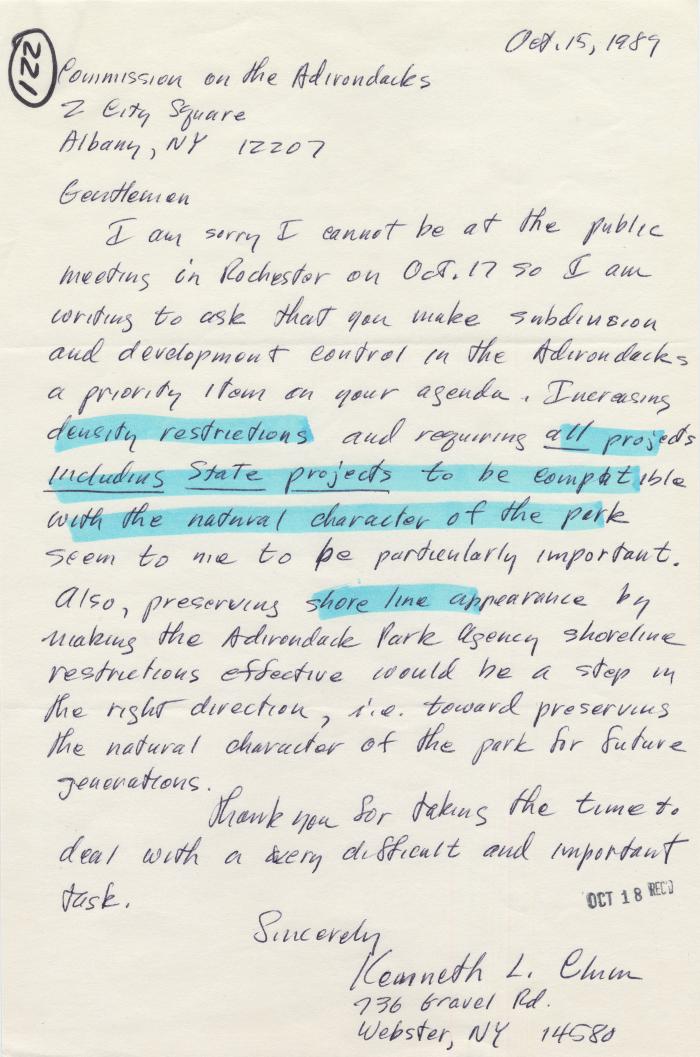 221
Oct. 15, 1989
Commission on the Adirondacks
2 City Square
Albany, NY 12207
Gentlemen
I am sorry I cannot be at the public
meeting in Rochester on Oct. 17 so I am
writing to ask that you make subdivision
and development control in the Adirondacks
a priority item on your agenda. Increasing
density restrictions and requiring all projects
including State projects to be compatible
with the natural character of the park
seem to me to be particularly important.
Also, preserving shore line appearance by
making the Adirondack Park Agency shoreline
restrictions effective would be a step in
the right direction, i.e. toward preserving
the natural character of the park for future
generations.
Thank you for taking the time to
deal with a very difficult and important
task.
OCT 18 REC'D
Sincerely
Kenneth L.
736 Gravel Rd.
Webster, NY 14580